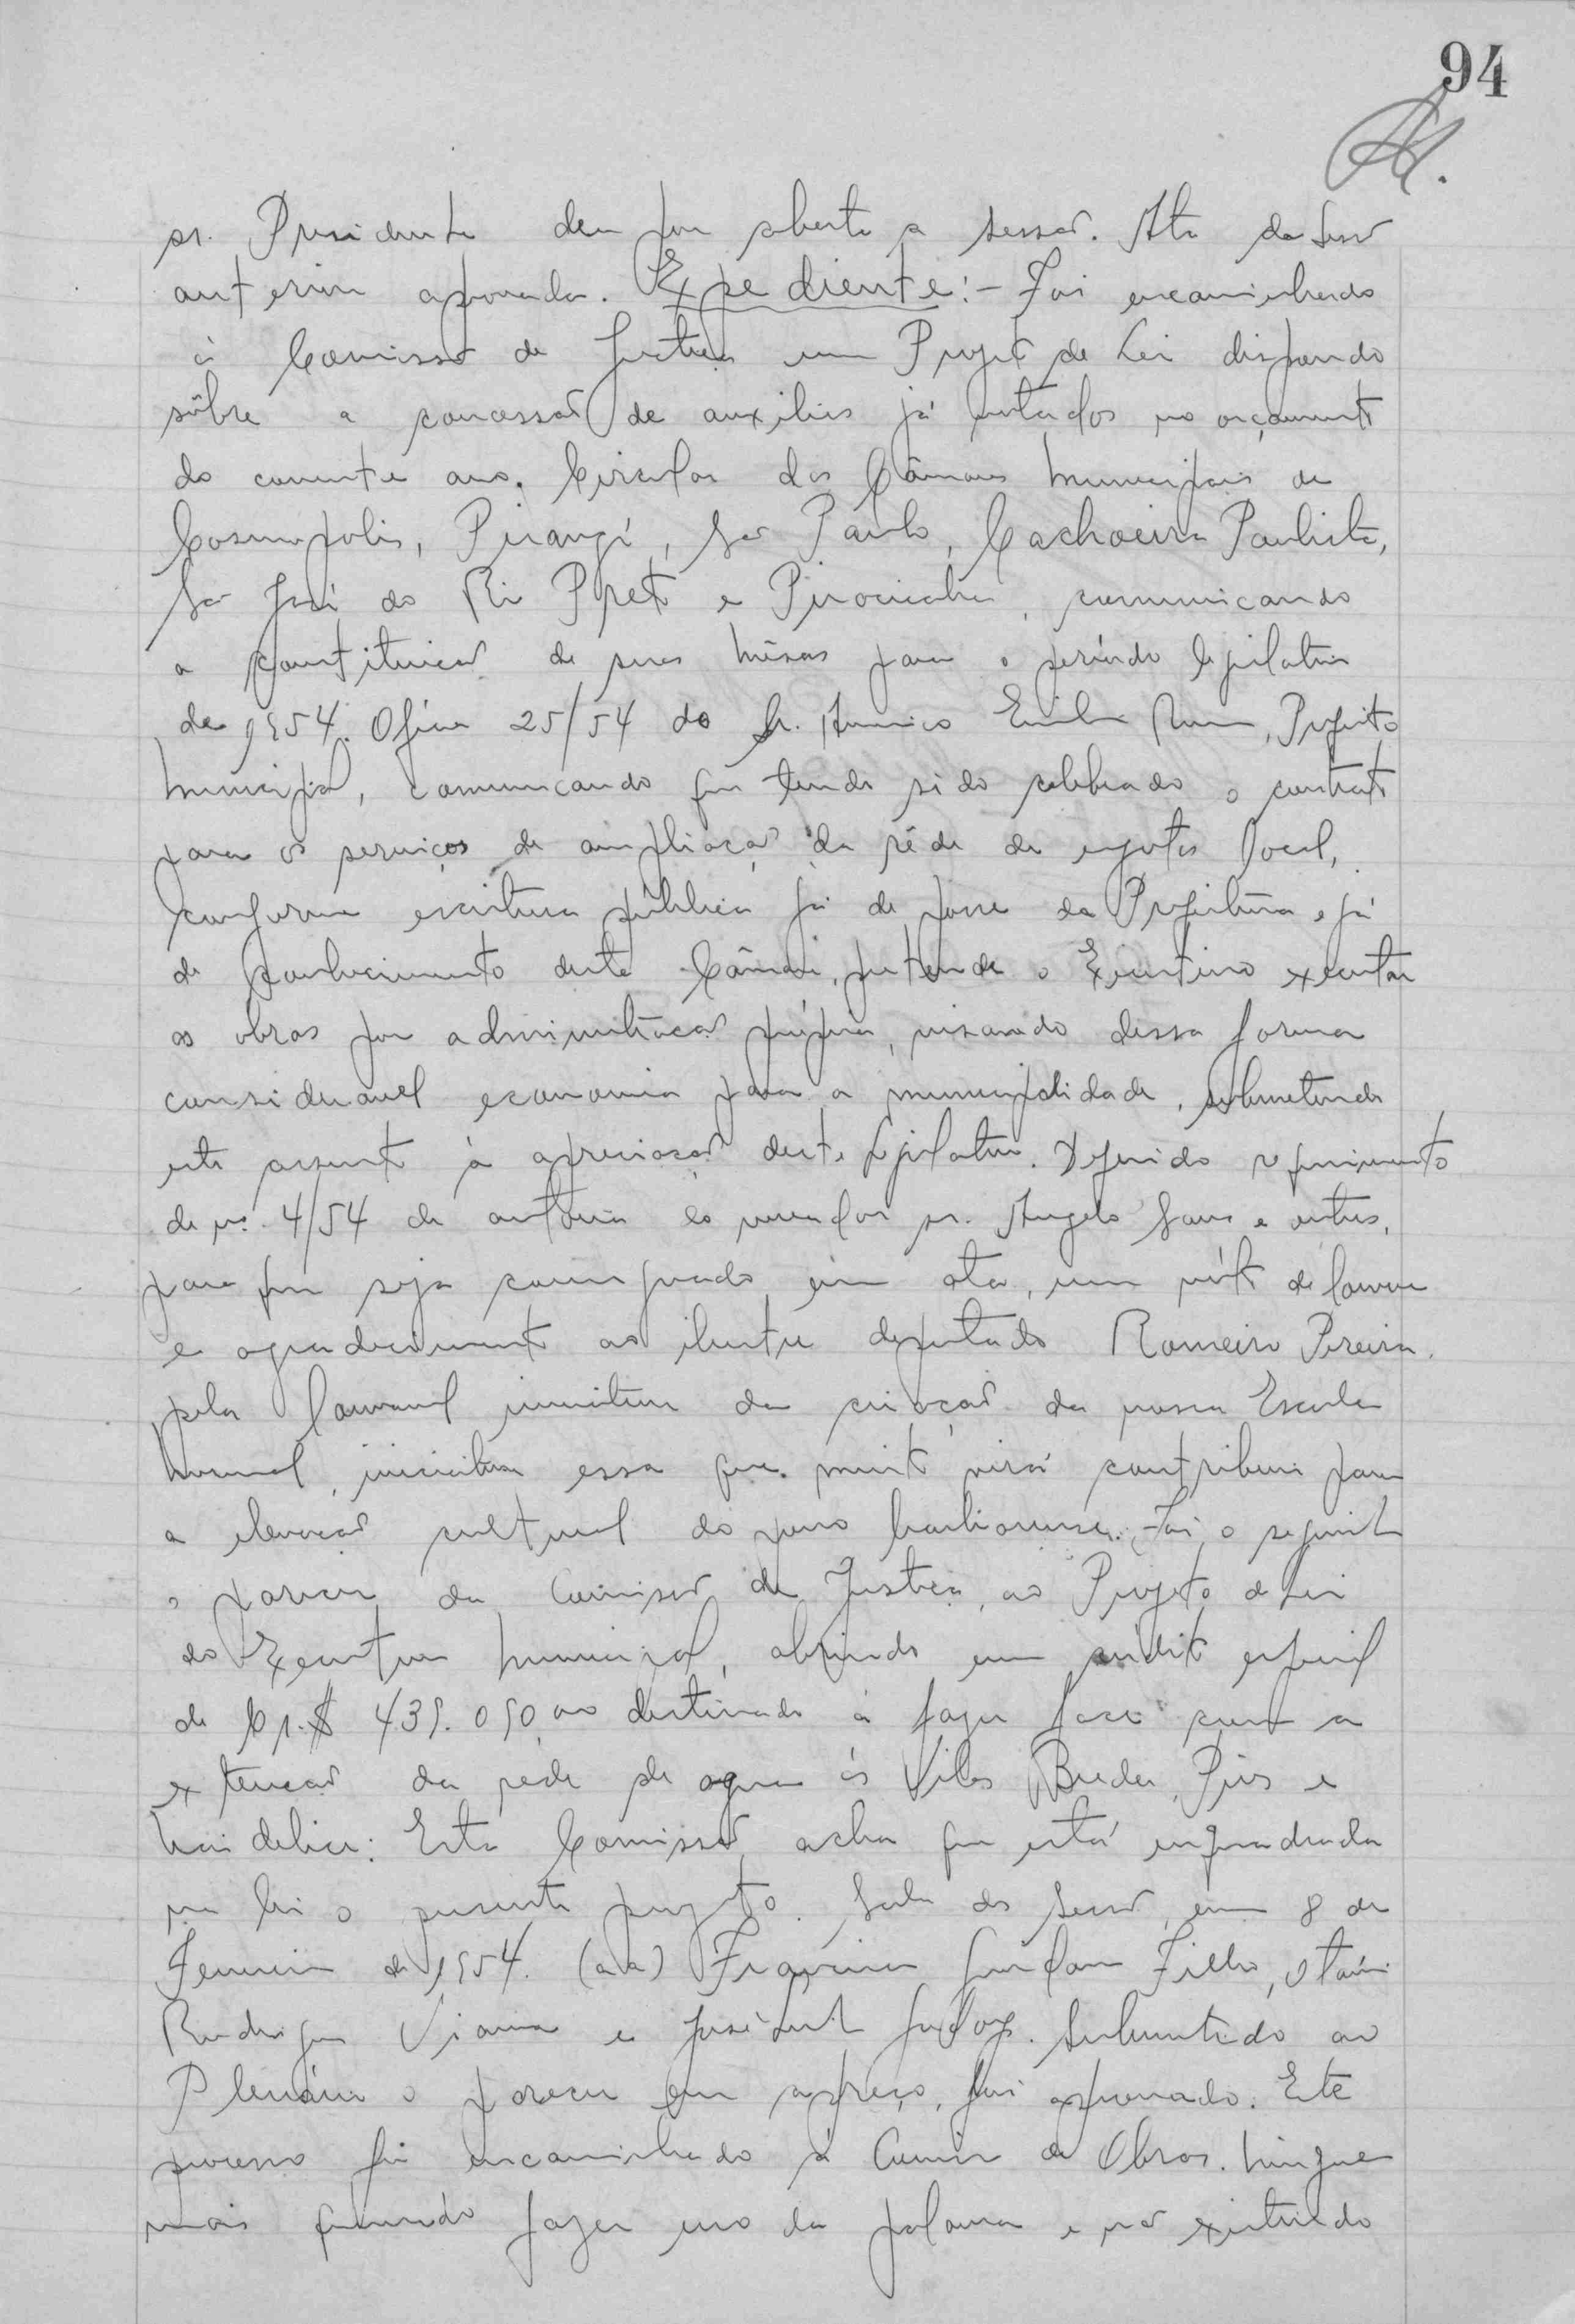 94
sr. Presidente deu por aberta a sessão. Ata da sessão
anterior aprovada. Expediente:- Foi encaminhado
à Comissão de Justiça um Projeto de Lei dispondo
sôbre a concessão de auxílios já votados no orçamento
do corrente ano. Circular das Câmaras Municipais de
Cosmopolis, Pirangí, São Paulo, Cachoeira Paulista,
São José do Rio Preto e Piracicaba, comunicando
a constituição de suas mêsas para o período legislativo
de 1954. Ofício 25/54 do Sr. Americo Emilio Prefeito
Municipal, comunicando que tendo sido celebrado o contrato
para os serviços de ampliação da rêde de esgotos local,
conforme escritura pública já de posse da Prefeitura e já
de conhecimento desta Câmara, pretende o Executivo executar
as obras por administração própria, visando dessa forma
consideravel economia para a municipalidade, submetendo
este assunto à apreciação deste Legislativo. Deferido requerimento
de nº. 4/54 de autoria do vereador sr. Angelo e outros,
para que seja consignado em ata, um vóto de louvor
e agradecimento ao ilustre deputado Romeiro Pereira,
pela louvavel iniciativa da criação da nossa Escola
Normal, iniciativa essa que muito virá contribuir para
a elevação cultural do povo Foi o seguinte
o parecer da Comissão de Justiça, ao Projeto de Lei
do Executivo Municipal, abrindo um crédito especial
de Cr.$ 439.090,00 destinado à fazer face com a
extenção da rede de agua às Vilas Breda, Pires e
Esta Comissão acha que está enquadrada
na lei o presente projeto. Sala das Sessões, em 8 de
Fevereiro de 1954. (aa) Francisco Filho, Otavio
Rodrigues Viana e José Submetido ao
Plenário o parecer em apreço, foi aprovado. Este
processo foi encaminhado à Comissão de Obras. Ninguem
mais querendo fazer uso da palavra e não existindo